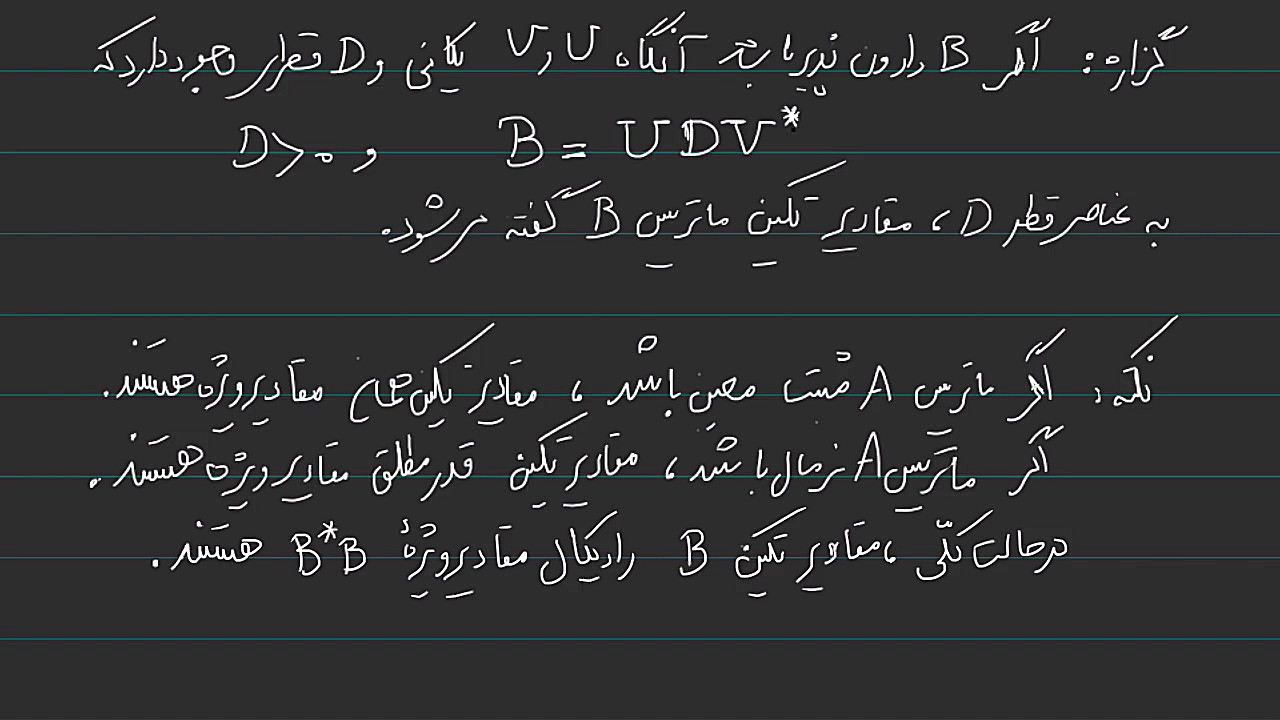 گزاره: اگر B وارون پذیر باشد آنگاه U و V یکانی و D قطری وجود دارد که
B = UDV* و D>0
به عناصر قطر D، مقادیر تکین ماتریس B گفته می‌شود.
نکته: اگر ماتریس A مثبت معین باشد، مقادیر تکین همان مقادیر ویژه هستند.
اگر ماتریس A نرمال باشد، مقادیر تکین قدر مطلق مقادیر ویژه هستند.
در حالت کلّی، مقادیر تکین B رادیکال مقادیر ویژهٔ B*B هستند.